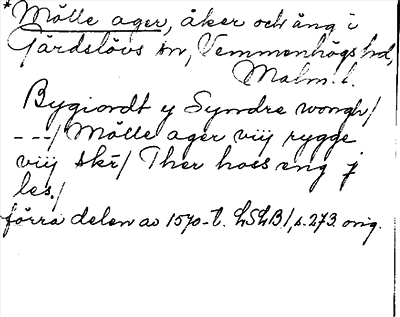 *Mölle ager, åker och äng i
Gärdslövs sn, Vemmenhögs hd,
Malm. l.
Bygiordt y Syndre wongh/
---/ Mölle ager viij rygge
viij skr̃/ Ther hoss eng j
les./
förra delen av 1570-t. LSLB1, s. 273. orig.